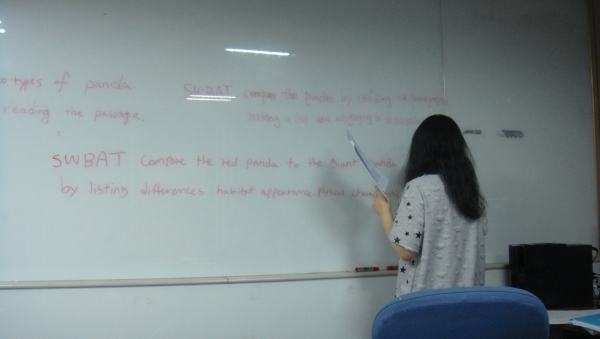 types of panda
reading the passage.
SWBAT compare the pandas by reading the
making a list and engaging in
SWBAT Compare the red panda to the giant
by listing differences habitat appearance.